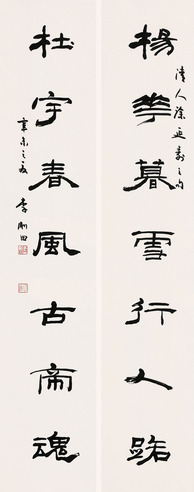 楊華暮雪行人路
清人徐延壽之句
杜宇春風古帝魂
辛未之夏 李剛田